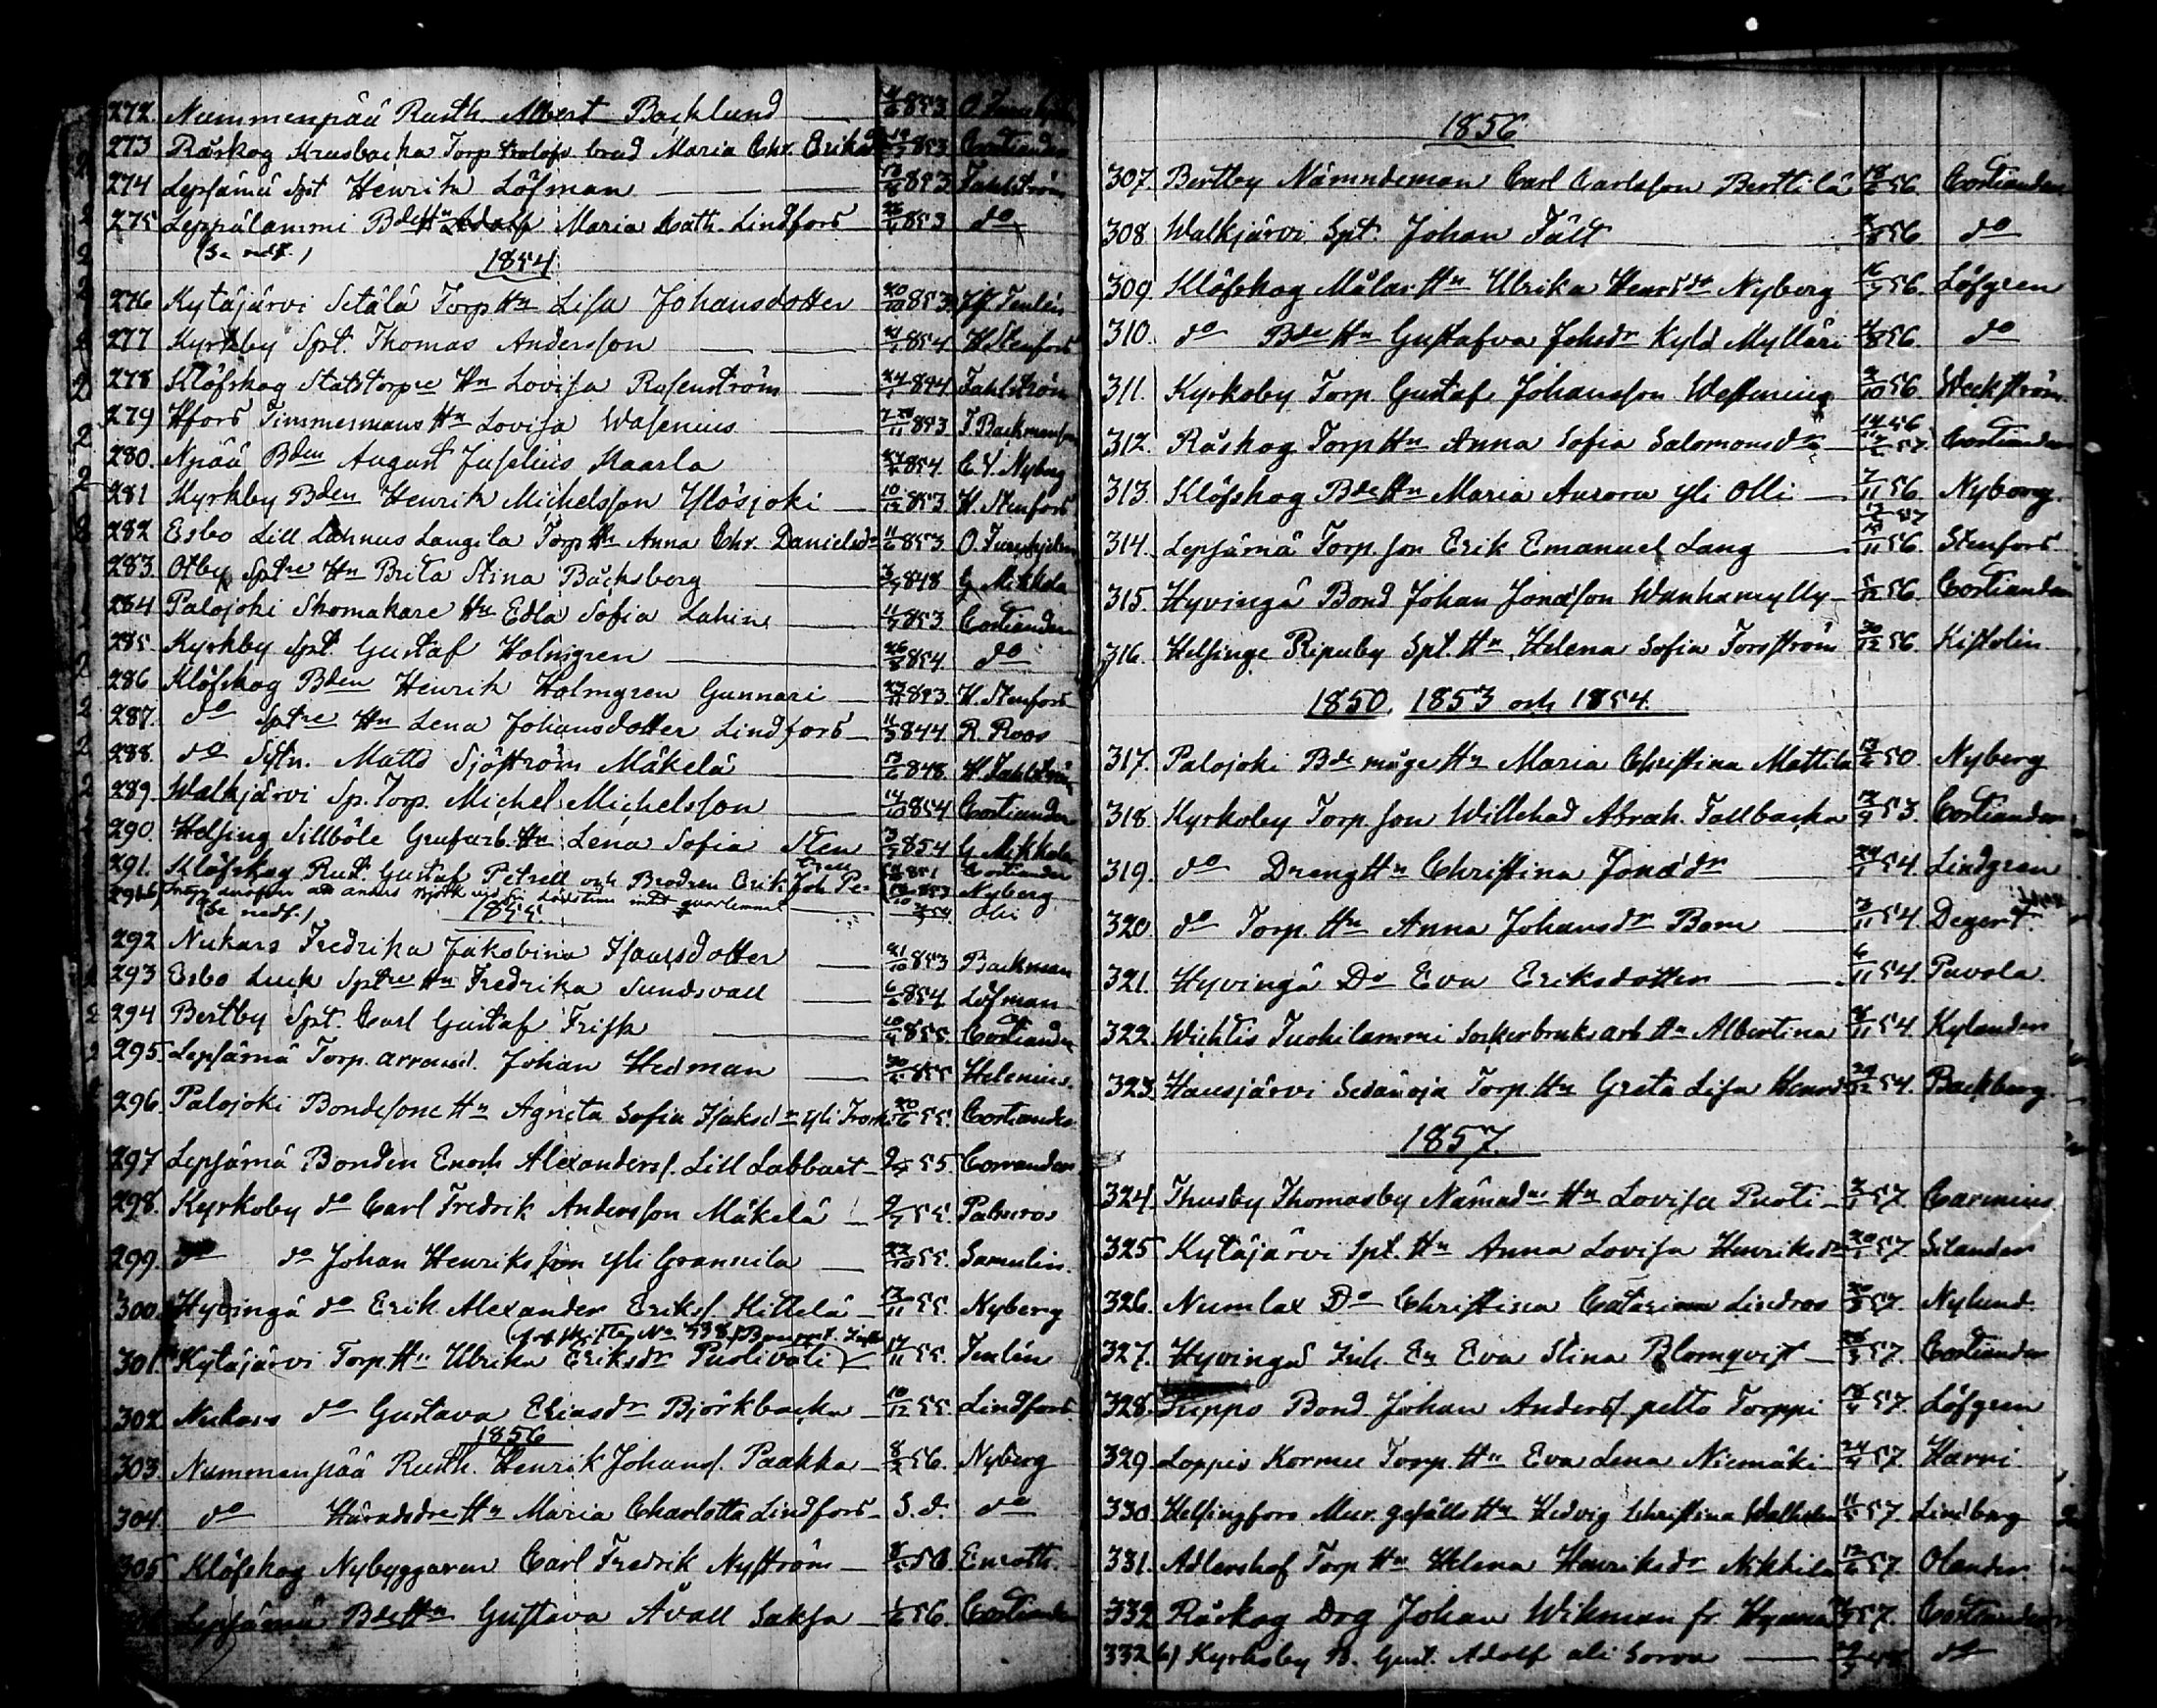 272. Nummenpää Rusth. Albert Backlund 853
273 Råskog Krusbacka Torp brud Maria Chr. 853 Costiander
274 Lepsämä Spt Henrik Löfman 853 Fahlström
275 Leppälammi Bde Hu Adolf Maria Cath. Lindfors 853 do
(Se nedf.) 1854.
276 Kytäjärvi Setälä Torp Hu Lisa Johansdotter 20/10 853 Tenlén
277 Kyrkby Spt. Thomas Andersson 854 H. Stenfors
278 Klöfskog Statstorpre Hu Lovisa Rosenström 844 Fahlström
279 Hfors Timmermans Hu Lovisa Wasenius 11 853 J Backmansson
280. Npää Bden August Juselius Kaarla 854 C. V. Nyberg
281 Kyrkby Bden Henrik Michelsson Ylösjoki 10/12 853. H. Stenfors
282 Esbo Lill Langila Torp Hu Anna Chr. Danielsdr 853.
283. Otby Sptre Hu Brita Stina Bäcksberg 848 G Mikkola
284 Palojoki Skomakare Hu Edla Sofia Lahin 853 Costiander
285. Kyrkby Spt. Gustaf Holmgren 26/8 854. do
286 Klöfskog Bden Henrik Holmgren Gunnari 853. H. Stenfors
287. do Sptre Hu Lena Johansdotter Lindfors 844. R. Roos
288. do Sytn. Matts Sjöström Mäkelä 848. H. Fahlström
289. Walkjärvi Sp. Torp. Michel Michelsson 14/10 854 Costiander
290. Helsing Sillböle Grufarb. Hu Lena Sofia Sten 854 G. Mikkola
291. Klöfskog Rust. Gustaf Petrell och Brodren Erik Joh Pe- trell 851 Costiander
291b) 853 Nyberg
(Se nedf.) 1855. 854 Oli
292 Nukars Fredrika Jakobina Isaacsdotter 21/10 853 Backman
293 Esbo Luck Sptre Hu Fredrika Sundsvall 854 Löfman
294 Bertby Spt. Carl Gustaf Frisk 855. Costiander
295. Lepsämä Torp. arrend. Johan Hedman 855 Helenius
296. Palojoki Bondesone Hu Agneta Sofia Isaksdr Yli 20/6 55. Costiander
297 Lepsämä Bonden Enoch Alexanders. Lill Labbart 55 Costiander
298. Kyrkoby do Carl Fredrik Andersson Mäkelä 55. Palmros
299. do do Johan Henriksson Yli Grannila 22/10 55. Samulin
300. Hyvingä do Erik Alexander Eriks. Kittelä 13/11 55. Nyberg
301. Kytäjärvi Torp Hu Ulrika Eriksdr Puolivoti 17/11 55. Tenlén
302. Nukars do Gustava Eliasdr Björkbacka 10/12 55 Lindfors
1856
303. Nummenpää Rusth. Henrik Johans. Paakka 8/2 56. Nyberg
304. do Häradsdre Hu Maria Charlotta Lindfors S. d. do
305 Klöfskog Nybyggaren Carl Fredrik Nyström 56. Enroth.
Lepsämä Bde Hu Gustava Åvall Saksa 1/6 56. Costiander
1856
307. Bertby Nämndeman Carl Carlsson Berttilä 18/6 56. Costiander
308. Walkjärvi Spt. Johan Fält 56 do
309. Klöfskog Målar Hu Ulrika Henrsdr Nyberg 16/9 56. Löfgren
310. do Bde Hu Gustafva Johsdr Kylä Mylläri 56. do
311. Kyrkoby Torp. Gustaf Johansson Westenius 56. Weckström
312. Råskog Torp Hu Anna Sofia Salomonsdr 57. Costiander
313. Klöfskog Bde Hu Maria Aurora Yli Olli 7/11 56 Nyborg.
314. Lepsämä Torp. son Erik Emanuel Lang 56. Stenfors
315. Hyvingä Bond Johan Jonasson Wanhamylly 56. Costiander
316. Helsinge Ripuby Spt. Hu Helena Sofia Forsström 30/12 56. Kistolin
1850, 1853 och 1854.
317. Palojoki Bde måge Hu Maria Christina Mattila 50. Nyberg
318. Kyrkoby Torp. son Willehad Abrah. Tallbacka 53. Costiander
319. do Dreng Hu Christina Jonasdr 54. Lindgren
320. do Torp. Hu Anna Johansdr Bom 54. Degert
321. Hyvingä Do Eva Eriksdotter 6/11 54. Pavola.
322. Wichtis Tuohilammi Sockerbruksarb Hu Albertina 54. Kylander
323. Hausjärvi Torp. Hu Greta Lisa 54. Backberg.
1857.
324. Thusby Thomasby Nämndns Hu Lovisa Puoti 57. Carenius
325 Kytäjärvi Spt. Hu Anna Lovisa Henriksdr 57. Silander
326. Numlax Do Christina Catarina Lindros 57. Nylund.
327. Hyvingä Inh. En Eva Stina Blomqvist 57. Costiander
328. Bond Johan Anders. pelto Torppi 57. Löfgren
329. Loppis Kormu Torp. Hu Eva Lena Niemäki 57. Harni.
330. Helsingfors Mur. gesälls Hu Hedvig Christina 57. Lindberg
331. Adlershof Torp Hu Helena Henriksdr Nikkilä 57. Olander
332 Råskog Drg Johan Wikman fr. 57. Costiander
332 b) Kyrkoby B. Gust. Adolf ali Sorva do